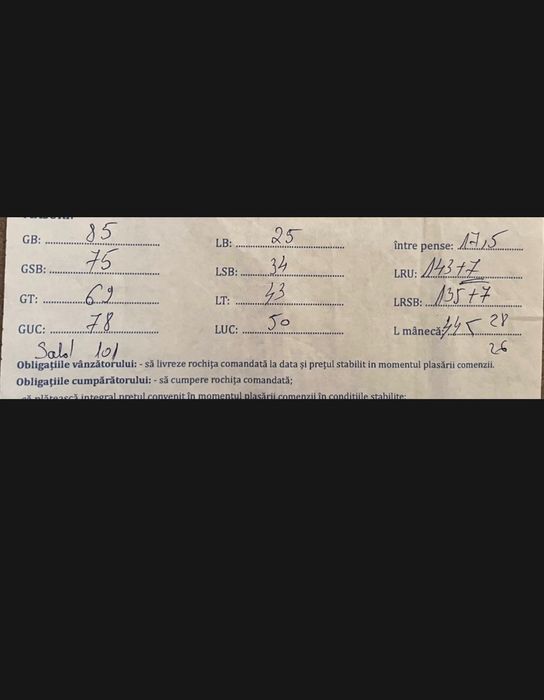 GB: 85 LB: 25 între pense: 17,5
GSB: 75 LSB: 34 LRU: 143+7
GT: 69 LT: 43 LRSB: 135+7
GUC: 78 LUC: 50 L mânecă: 28
101 26
Obligațiile vânzătorului: - să livreze rochița comandată la data și prețul stabilit in momentul plasării comenzii.
Obligațiile cumpărătorului: - să cumpere rochița comandată;
să plătească integral prețul convenit în momentul plasării comenzii în condițiile stabilite;